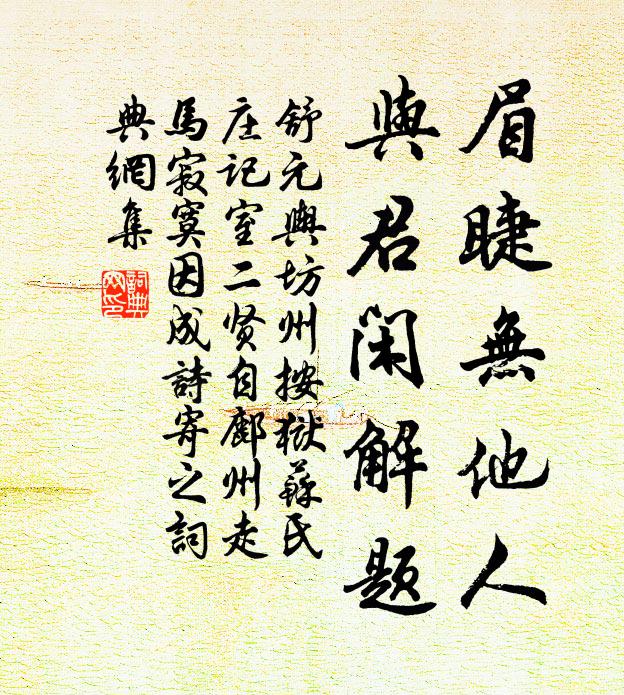 眉睫無他人
與君閑解題
舒元輿坊州按獄蘇氏
庄记室二贤自鄜州走
馬寂寞因成詩寄之詞
典網集
詞典
网印